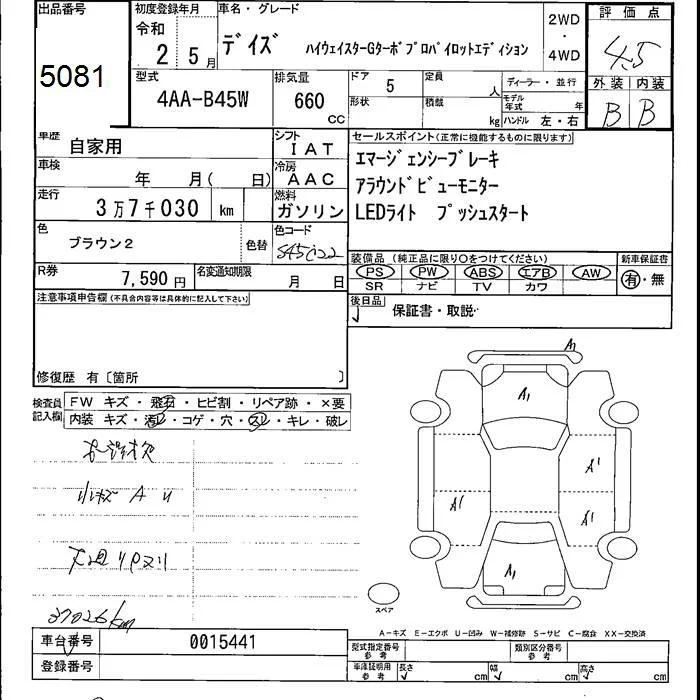 出品番号
5081
初度登録年月
令和
2 5月
車名・グレード
デイズ ハイウェイスターGターボプロパイロットエディション
2WD
・
4WD
評価点
4.5
外装 内装
B B
型式
4AA-B45W
排気量
660
CC
ドア
5
定員
人
形状
積載
kg
ディーラー・並行
モデル
年式
年
ハンドル 左・右
車歴
自家用
シフト
IAT
車検
年 月( 日)
冷房
AAC
走行
3万7千030 km
燃料
ガソリン
色
ブラウン2
色替
色コード
R券
7,590円
名変通知期限
月 日
セールスポイント(正常に機能するものに限ります)
エマージェンシーブレーキ
アラウンドビューモニター
LEDライト プッシュスタート
装備品(純正品に限り○をつけてください)
新車保証書
PS PW ABS エアB AW
SR ナビ TV カワ
有・無
後日品
保証書・取説
注意事項申告欄(不具合内容等は具体的に記入して下さい)
修復歴 有〔箇所 〕
検査員
記入欄
FW キズ・飛石・ヒビ割・リペア跡・×要
内装 キズ・汚レ・コゲ・穴・スレ・キレ・破レ
小キズ A U
37026km
A1
A1
A1
A1
A1
A1
スペア
A-キズ E-エクボ U-凹み W-補修跡 S-サビ C-腐食 XX-交換済
車台番号
0015441
登録番号
型式指定番号
参考
類別区分番号
参考
車庫証明用
参考
長さ
cm
幅
cm
高さ
cm